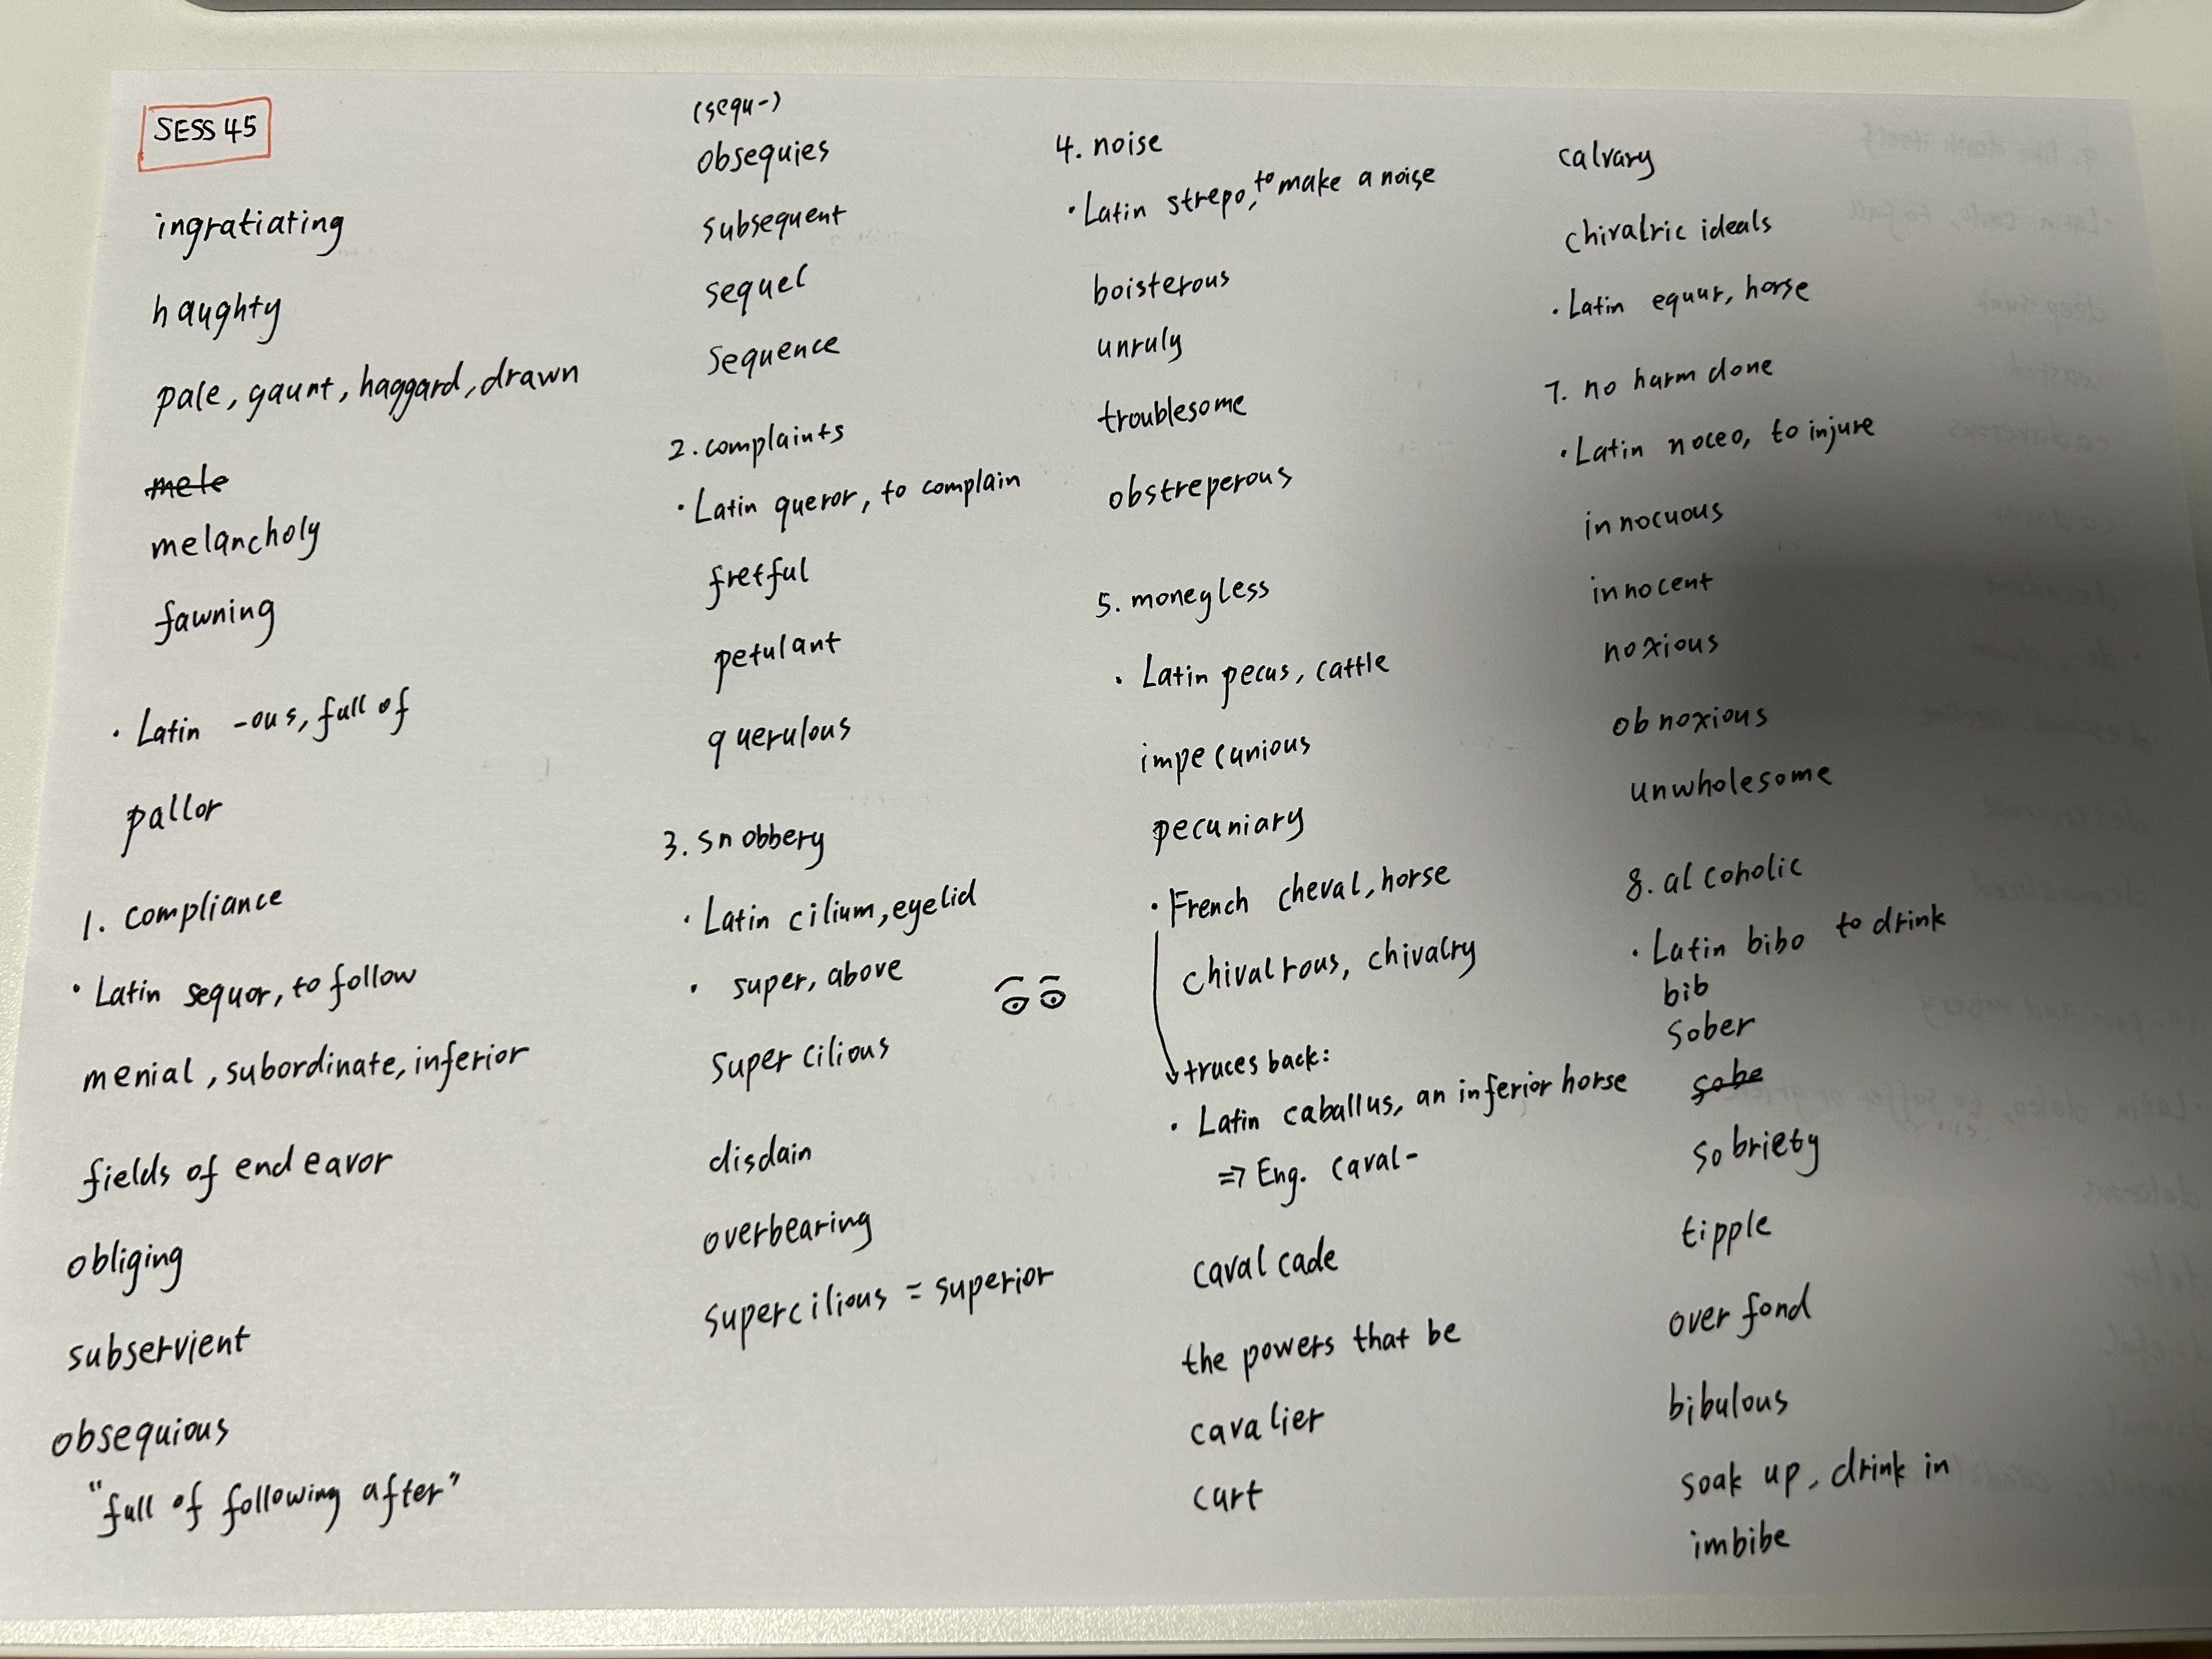 SESS 45
ingratiating
haughty
pale, gaunt, haggard, drawn
mele
melancholy
fawning
· Latin -ous, full of
pallor
1. compliance
· Latin sequor, to follow
menial, subordinate, inferior
fields of endeavor
obliging
subservient
obsequious
"full of following after"
(sequ-)
obsequies
subsequent
sequel
sequence
2. complaints
· Latin queror, to complain
fretful
petulant
querulous
3. snobbery
· Latin cilium, eyelid
· super, above
supercilious
disdain
overbearing
supercilious = superior
4. noise
· Latin strepo, to make a noise
boisterous
unruly
troublesome
obstreperous
5. moneyless
· Latin pecus, cattle
impecunious
pecuniary
· French cheval, horse
chivalrous, chivalry
traces back:
· Latin caballus, an inferior horse
⇒ Eng. caval-
cavalcade
the powers that be
cavalier
curt
calvary
chivalric ideals
· Latin equur, horse
7. no harm done
· Latin noceo, to injure
innocuous
innocent
noxious
obnoxious
unwholesome
8. alcoholic
· Latin bibo to drink
bib
sober
sobe
sobriety
tipple
overfond
bibulous
soak up, drink in
imbibe